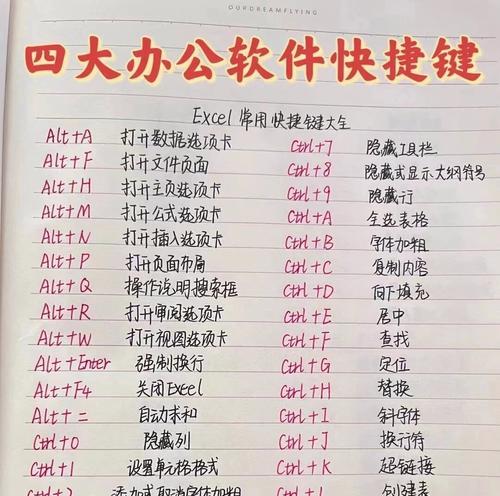 OURDREAMFLYING
四大办公软件快捷键
Excel 常用快捷键大全
Alt+A 打开数据选项卡 Ctrl+7 隐藏工具栏
Alt+F 打开文件页面 Ctrl+8 隐藏或显示大纲符号
Alt+H 打开主页选项卡 Ctrl+9 隐藏行
Alt+M 打开公式选项卡 Ctrl+A 全选表格
Alt+N 打开插入选项卡 Ctrl+B 字体加粗
Alt+P 打开页面布局 Ctrl+C 复制内容
Alt+Q 操作说明搜索框 Ctrl+D 向下填充
Alt+R 打开审阅选项卡 Ctrl+E 居中
Alt+W 打开视图选项卡 Ctrl+F 查找
Alt+Enter 强制换行 Ctrl+G 定位
Alt+F4 关闭Excel Ctrl+H 替换
Alt+= 自动求和 Ctrl+I 斜字体
Ctrl+0 隐藏列 Ctrl+J 换行符
Ctrl+1 设置单元格格式 Ctrl+K 超链接
Ctrl+2 添加或取消字体加粗 Ctrl+L 创建表